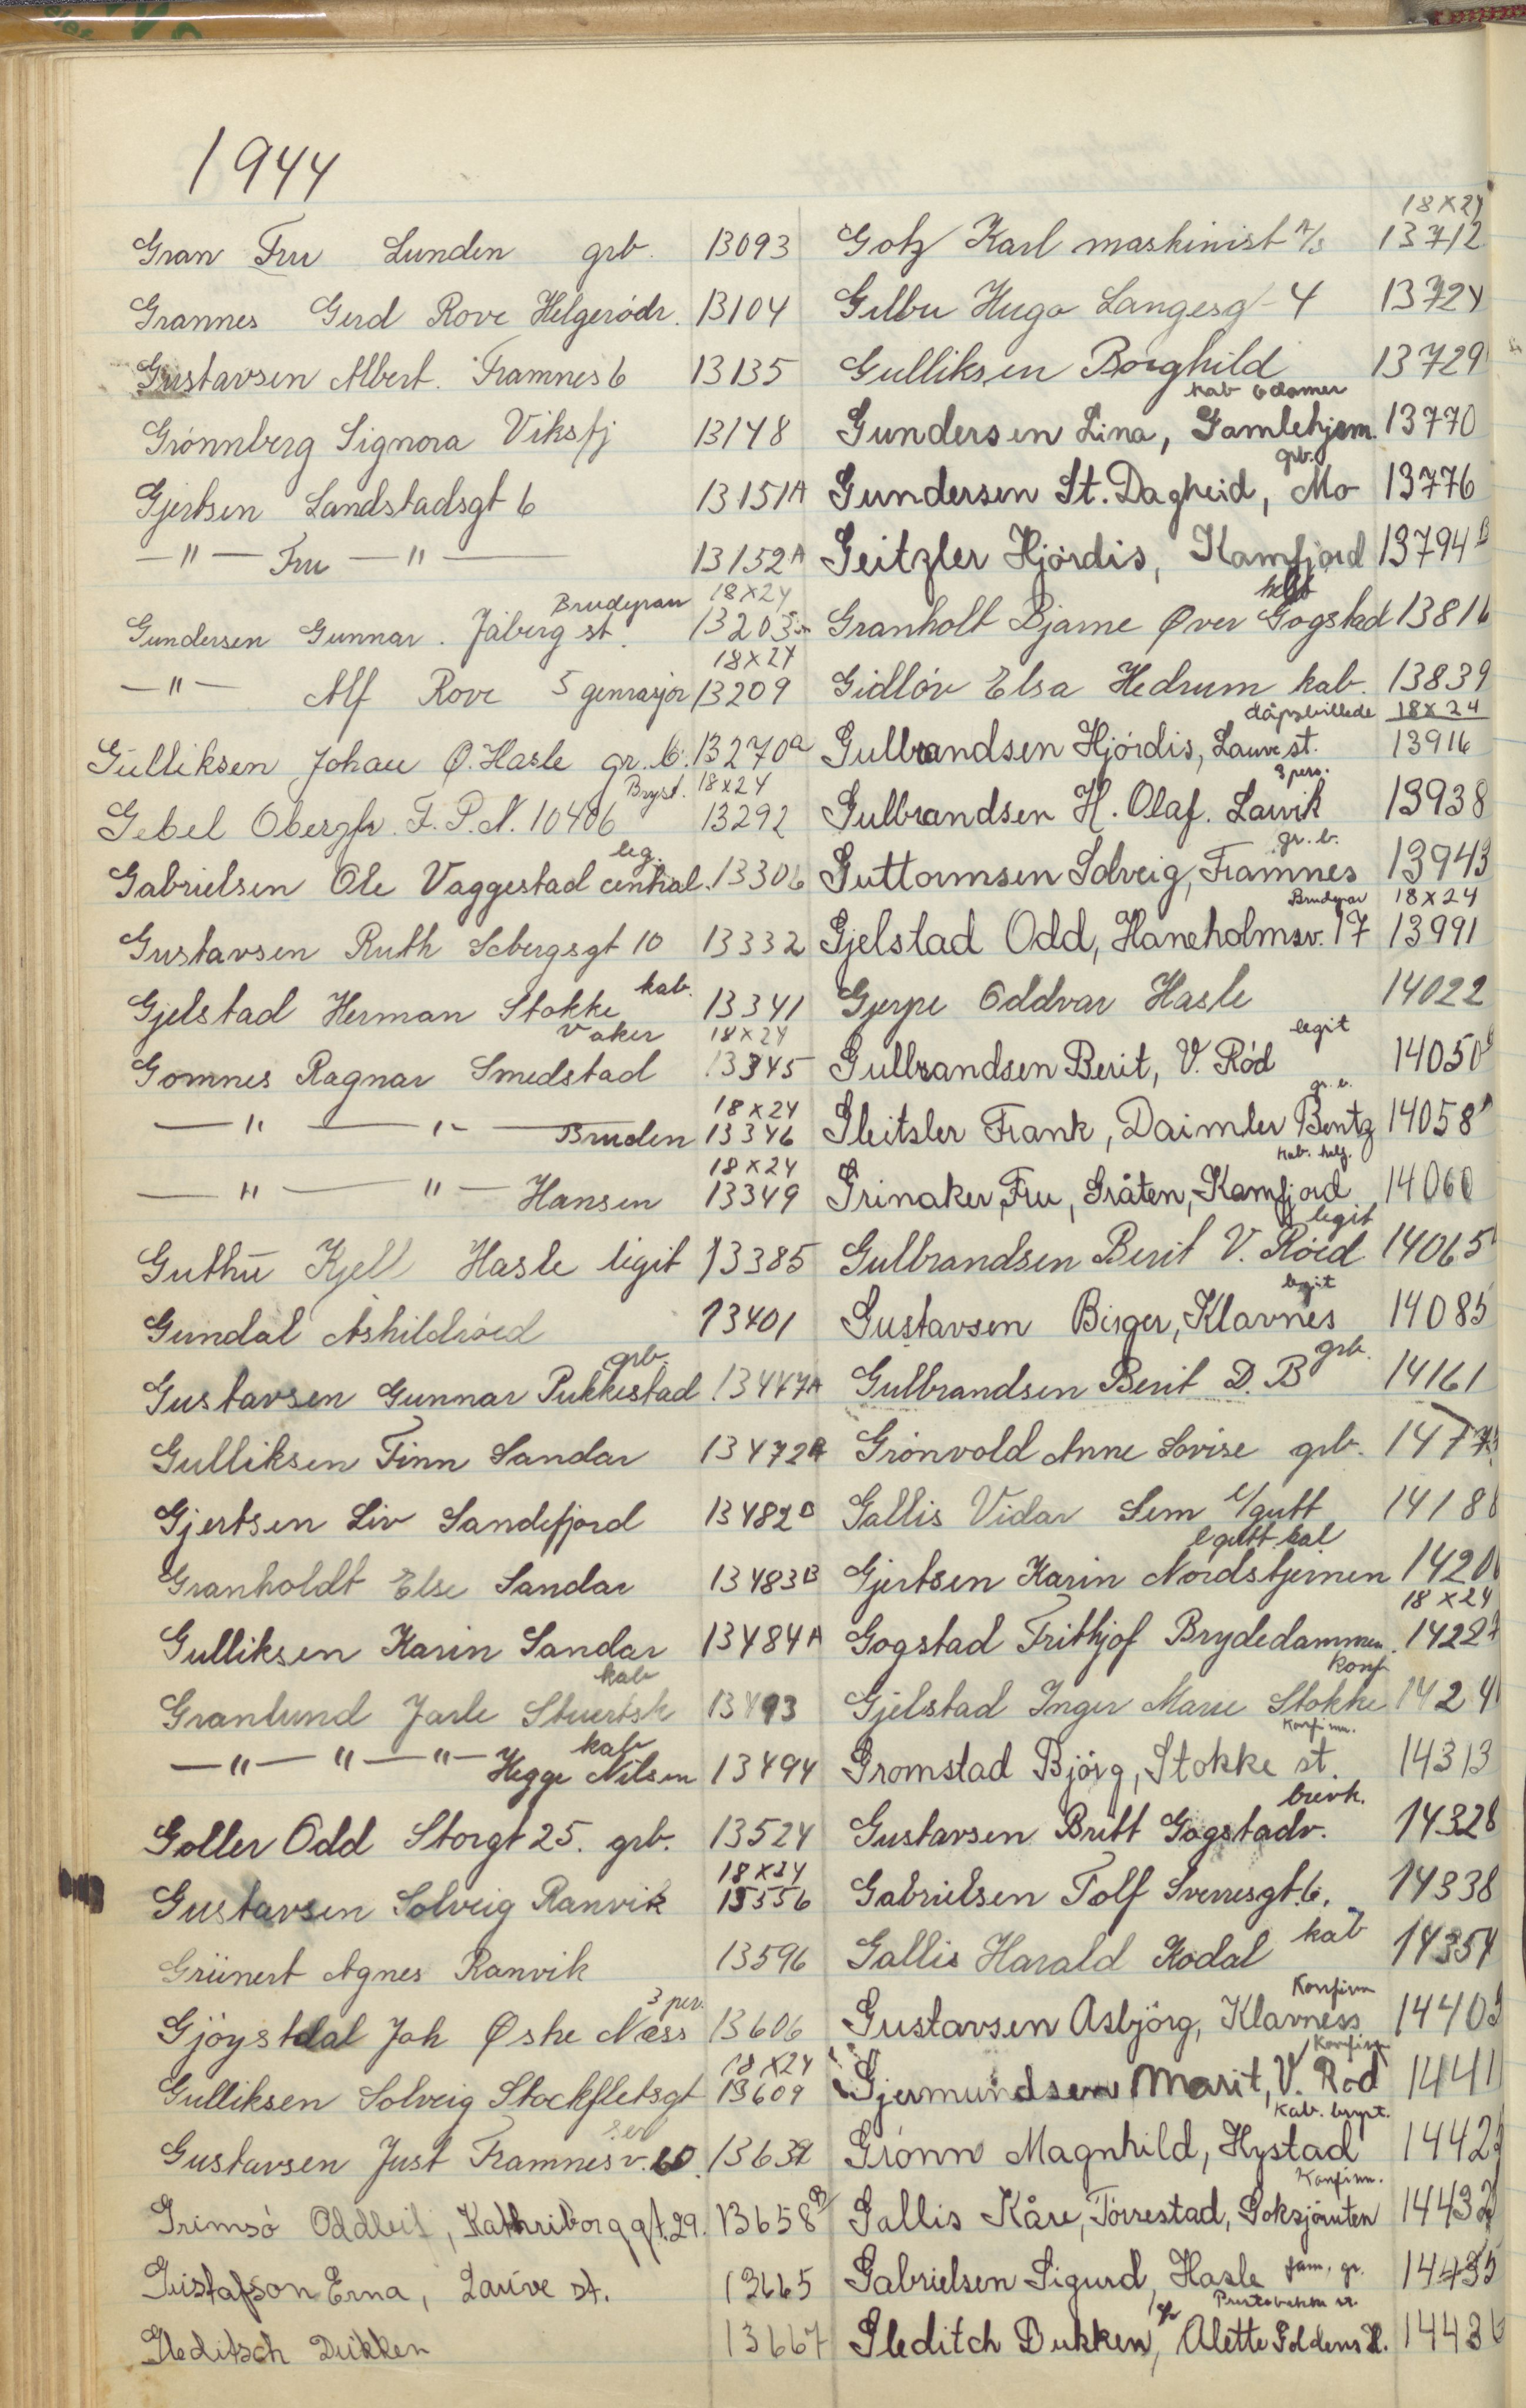 1944
Gran Fru Lunden grb. 13093
Grannes Gerd Rove Helgerödr. 13104
Gustavsen Albert. Framnes 6 13135
Grönnberg Signora Viksfj 13148
Gjertsen Landstadsgt 6 13151A
—"— Fru —"— 13152A
Brudepar 18x24
Gundersen Gunnar. Jåberg st. 13203
18x24
—"— Alf Rove 5 genrasjor 13209
Gulliksen Johan Ø. Hasle gr. b. 13270a
Bryst. 18x24
Gebel Obergfr. F. P. N. 10406 13292
leg.
Gabrielsen Ole Vaggestad central. 13306
Gustavsen Ruth Sebergsgt 10 13332
kab.
Gjelstad Herman Stokke 13341
v aker 18x24
Gomnes Ragnar Smedstad 13345
18x24
—"— —"— Bruden 13346
18x24
—"— "— Hansen 13349
Guthu Kjell Hasle legit 13385
Gundal Askildröed 13401
grb.
Gustavsen Gunnar Pukkestad 13447A
Gulliksen Finn Sandar 13472A
Gjertsen Liv Sandefjord 13482B
Granholdt Else Sandar 13483B
Gulliksen Karin Sandar 13484A
kab
Granlund Jarle Stuertsk 13493
kab
—"— "—"— Hegge Nilsen 13494
Goller Odd Storgt 25. grb. 13524
18x24
Gustavsen Solveig Ranvik 13556
Grünert Agnes Ranvik 13596
3 per.
Gjöystdal Joh Østre Næss 13606
18x24
Gulliksen Solveig Stockfletsgt 13609
Gustavsen Just Framnesv. 60. 13632
Grimsö Oddleif, Kathriborggt. 29. 13658B
Gustafson Erna, Lauve st. 13665
Gleditsch Dukken 13667
18x24
Gotz Karl maskinist A/S 13712
Gilbu Hugo Langesg 4 13724
Gulliksen Borghild 13729
kab 6 damer
Gundersen Lina, Gamlehjem. 13770
grb.
Gundersen St. Dagheid, Mo 13776
Geitzler Hjördis, Kamfjord 13794B
helf
Granholt Bjarne Øver Gogstad 13816
Gidlöv Elsa Hedrum kab. 13839
dåpsbillede 18x24
Gulbrandsen Hjördis, Lauve st. 13916
3 pers.
Gulbrandsen H. Olaf. Larvik 13938
gr. b.
Guttormsen Solveig, Framnes 13943
Brudepar 18x24
Gjelstad Odd, Haneholmsv. 17 13991
Gjerpe Oddvar Hasle 14022
legit
Gulbrandsen Berit, V. Röd 14050
gr. b.
Gleitsler Frank, Daimler Bentz 14058
kab. helg.
Grinaker, Fru, Gråten, Kamfjord 14060
legit
Gulbrandsen Berit V. Röed 14065
legit
Gustavsen Birger, Klavnes 14085
grb.
Gulbrandsen Berit D. B 14161
Grönvold Anne Lovise grb.
Gallis Vidar Sem l/gutt 14188
l gutt kal
Gjertsen Karin Nordstjernen 1420
18x24
Gogstad Frithjof Brydedammen. 1422
konf
Gjelstad Inger Marie Stokke 1424
Konfirm.
Gromstad Björg, Stokke st. 14313
brevk.
Gustavsen Britt Gogstadv. 14328
Gabrielsen Tolf Sverresgt. 6. 14338
kab
Gallis Harald Kodal 14354
Konfirm
Gustavsen Asbjörg, Klavness 14403
Konfirm
Gjermundsen Marit, V. Rod 1441
Kab. bryst.
Grönn Magnhild, Hystad 1442
Konfirm.
Gallis Kåre, Törrestad, Goksjöruten 14432
Gabrielsen Sigurd, Hasle fam. gr. 14435
Gleditch Dukken, Alette Goldens H. 14436